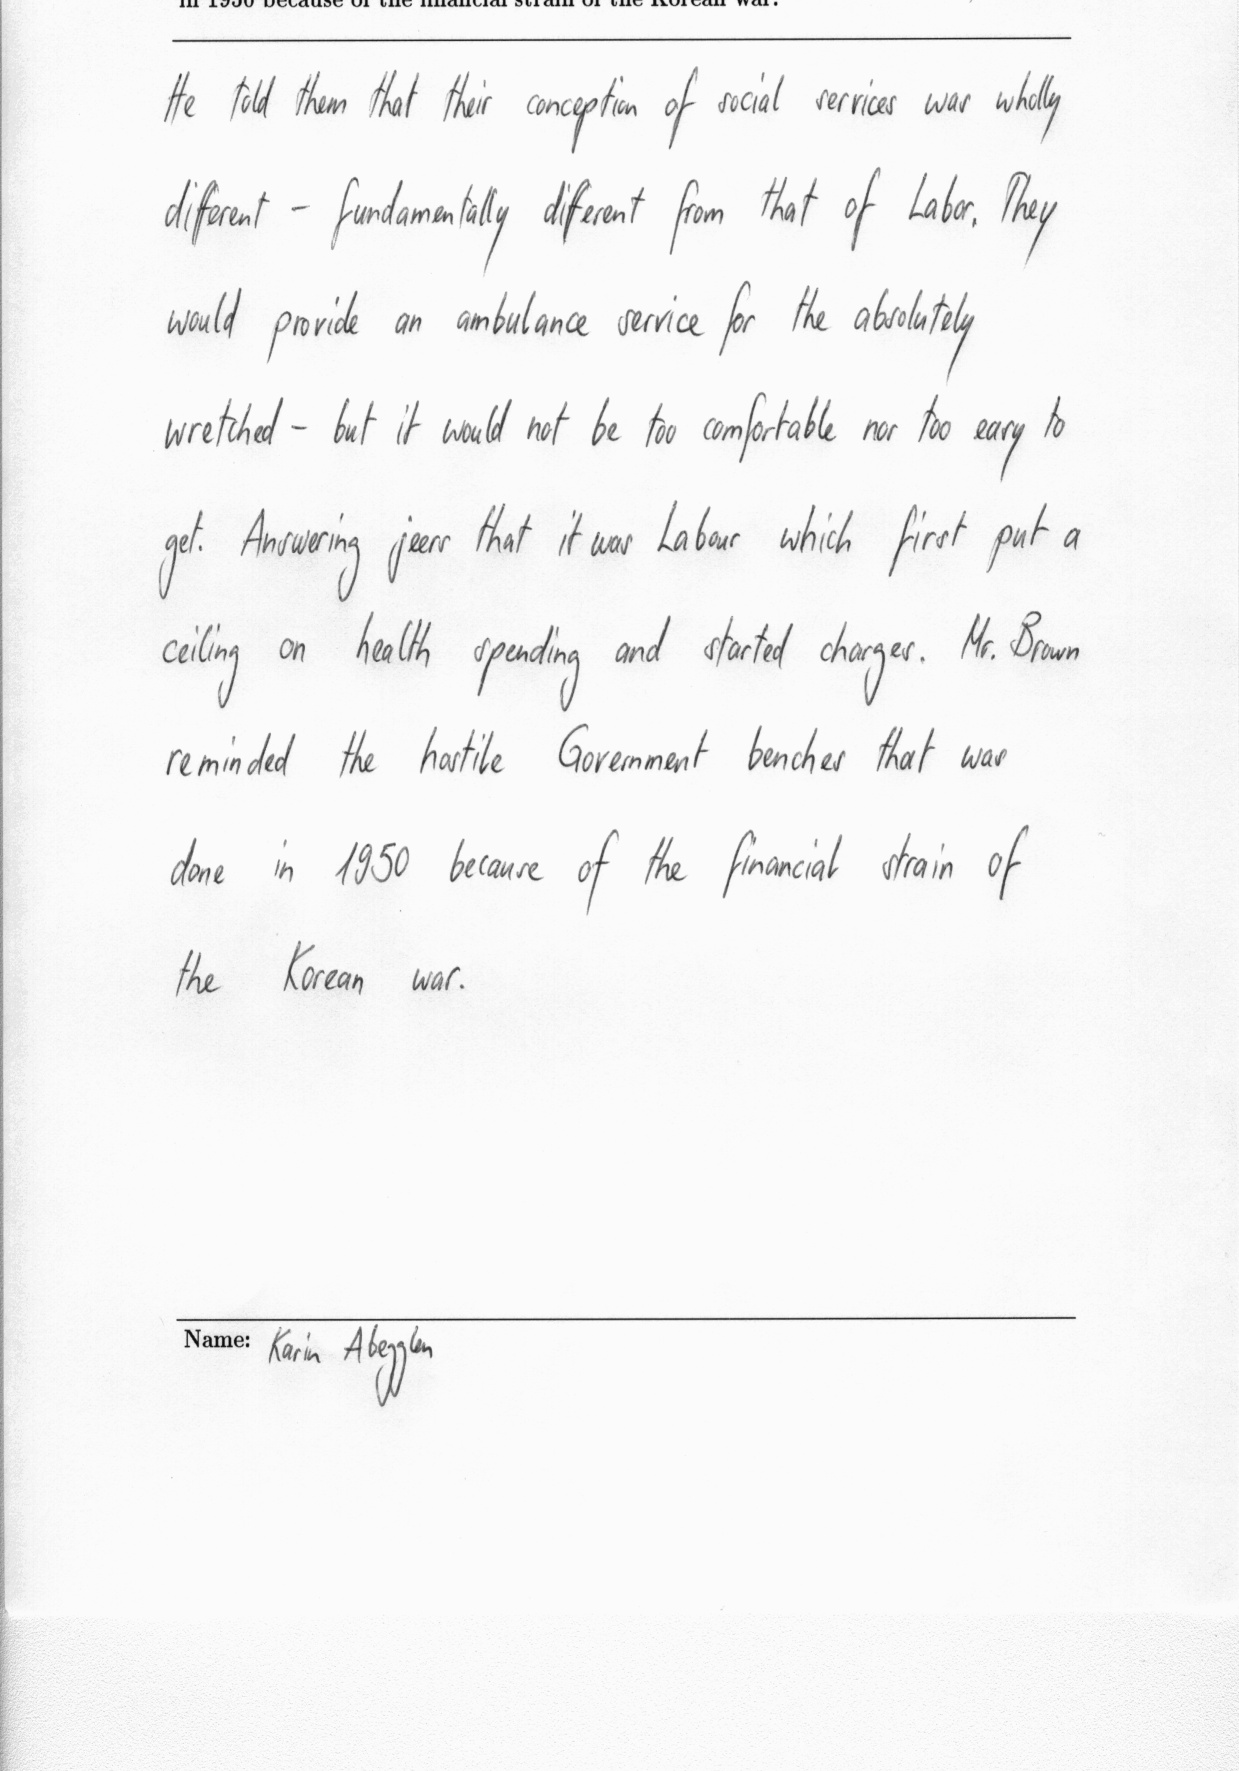 in 1950 because of the financial strain of the Korean war.
He told them that their conception of social services was wholly
different - fundamentally different from that of Labor. They
would provide an ambulance service for the absolutely
wretched - but it would not be too comfortable nor too easy to
get. Answering jeers that it was Labour which first put a
ceiling on health spending and started charges. Mr. Brown
reminded the hostile Government benches that was
done in 1950 because of the financial strain of
the Korean war.
Name: Karin Abegglen